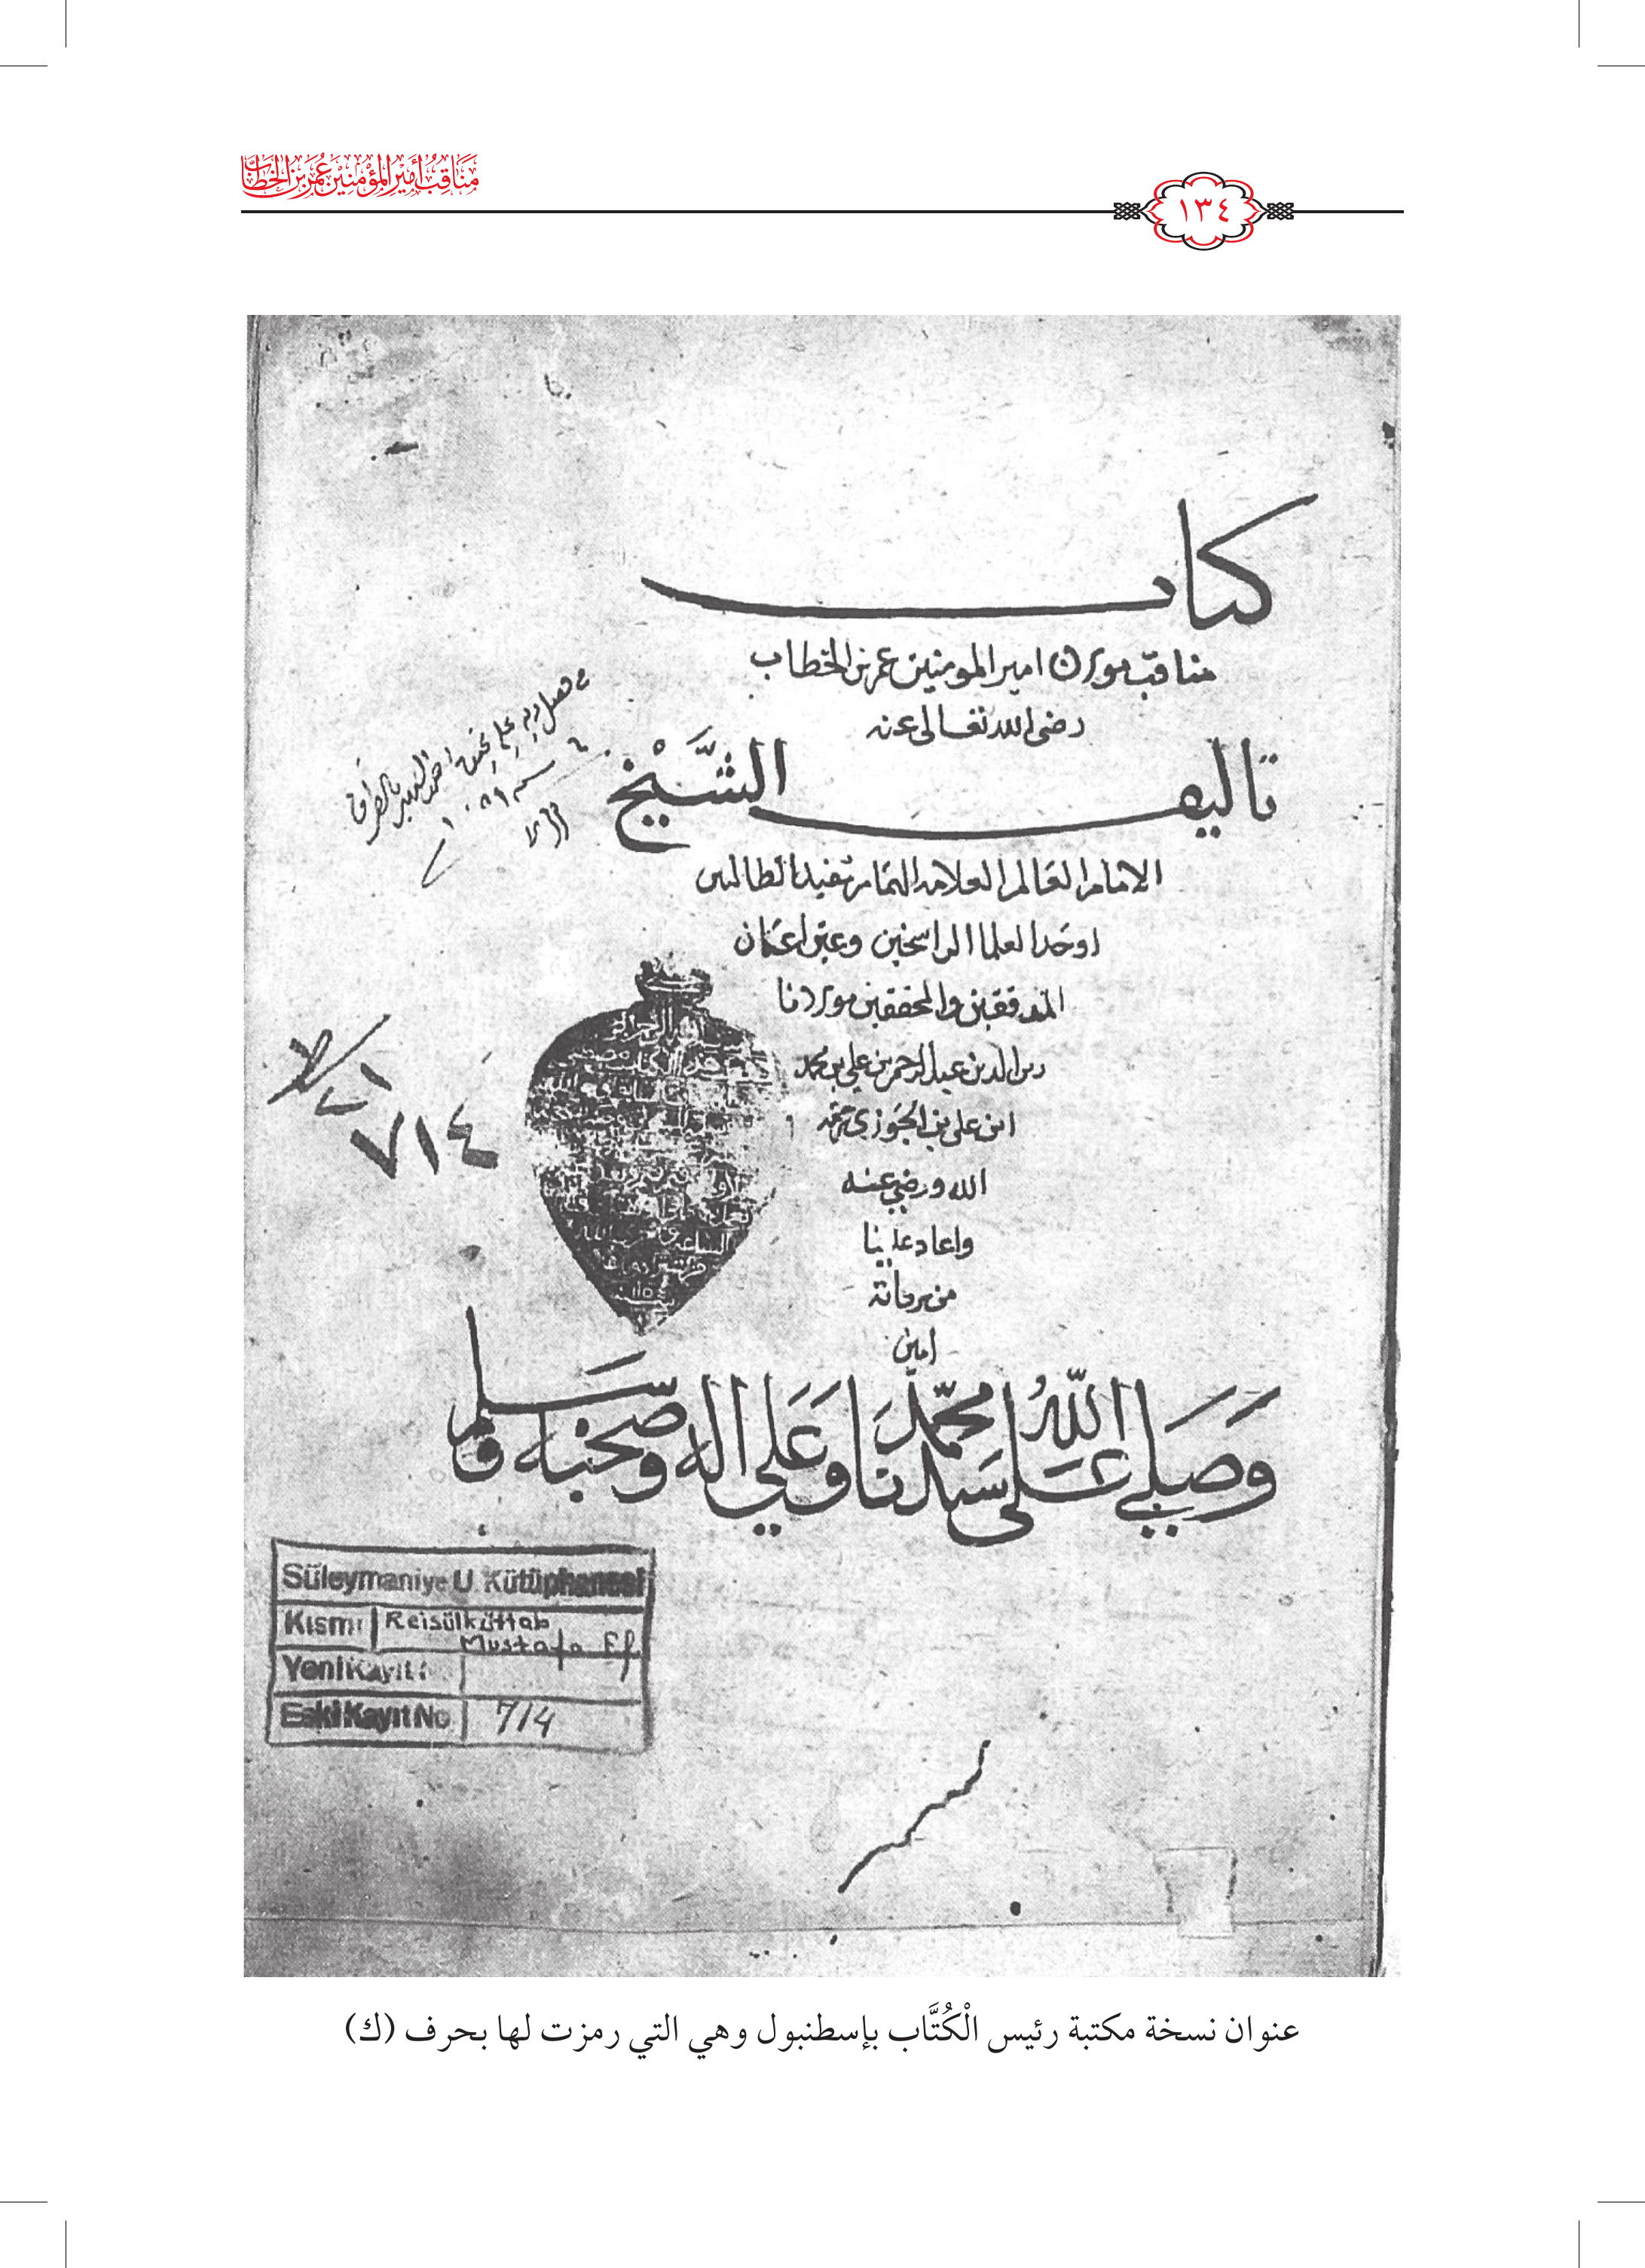 مَنَاقِبُ أَمِيرِ المُؤْمِنِينَ عُمَرَ بنِ الخَطَّابِ
١٣٤
كتاب
مناقب مولانا امير المومنين عمر بن الخطاب
رضى الله تعالى عنه
تاليف الشَّيْخ
الامام العالم العلامه الهمام مفيد الطالبين
اوحد العلما الراسخين وعين اعيان
المدققين والمحققين مولانا
الدين عبد الرحمن بن علي بن محمد
ابن على بن الجوزي رحمه
الله ورضي عنه
واعاد علينا
من بركاته
امين
وَصَلي اللهُ عَلى سيدنا محمّد وعَلي اله وصحبه وسَلم
٧١٤
Süleymaniye U. Kütüphanesi
Kısmı Reisülküttab
Mustafa Ef.
Yeni Kayıt
Eski Kayıt No 714
عنوان نسخة مكتبة رئيس الْكُتَّاب بإسطنبول وهي التي رمزت لها بحرف (ك)